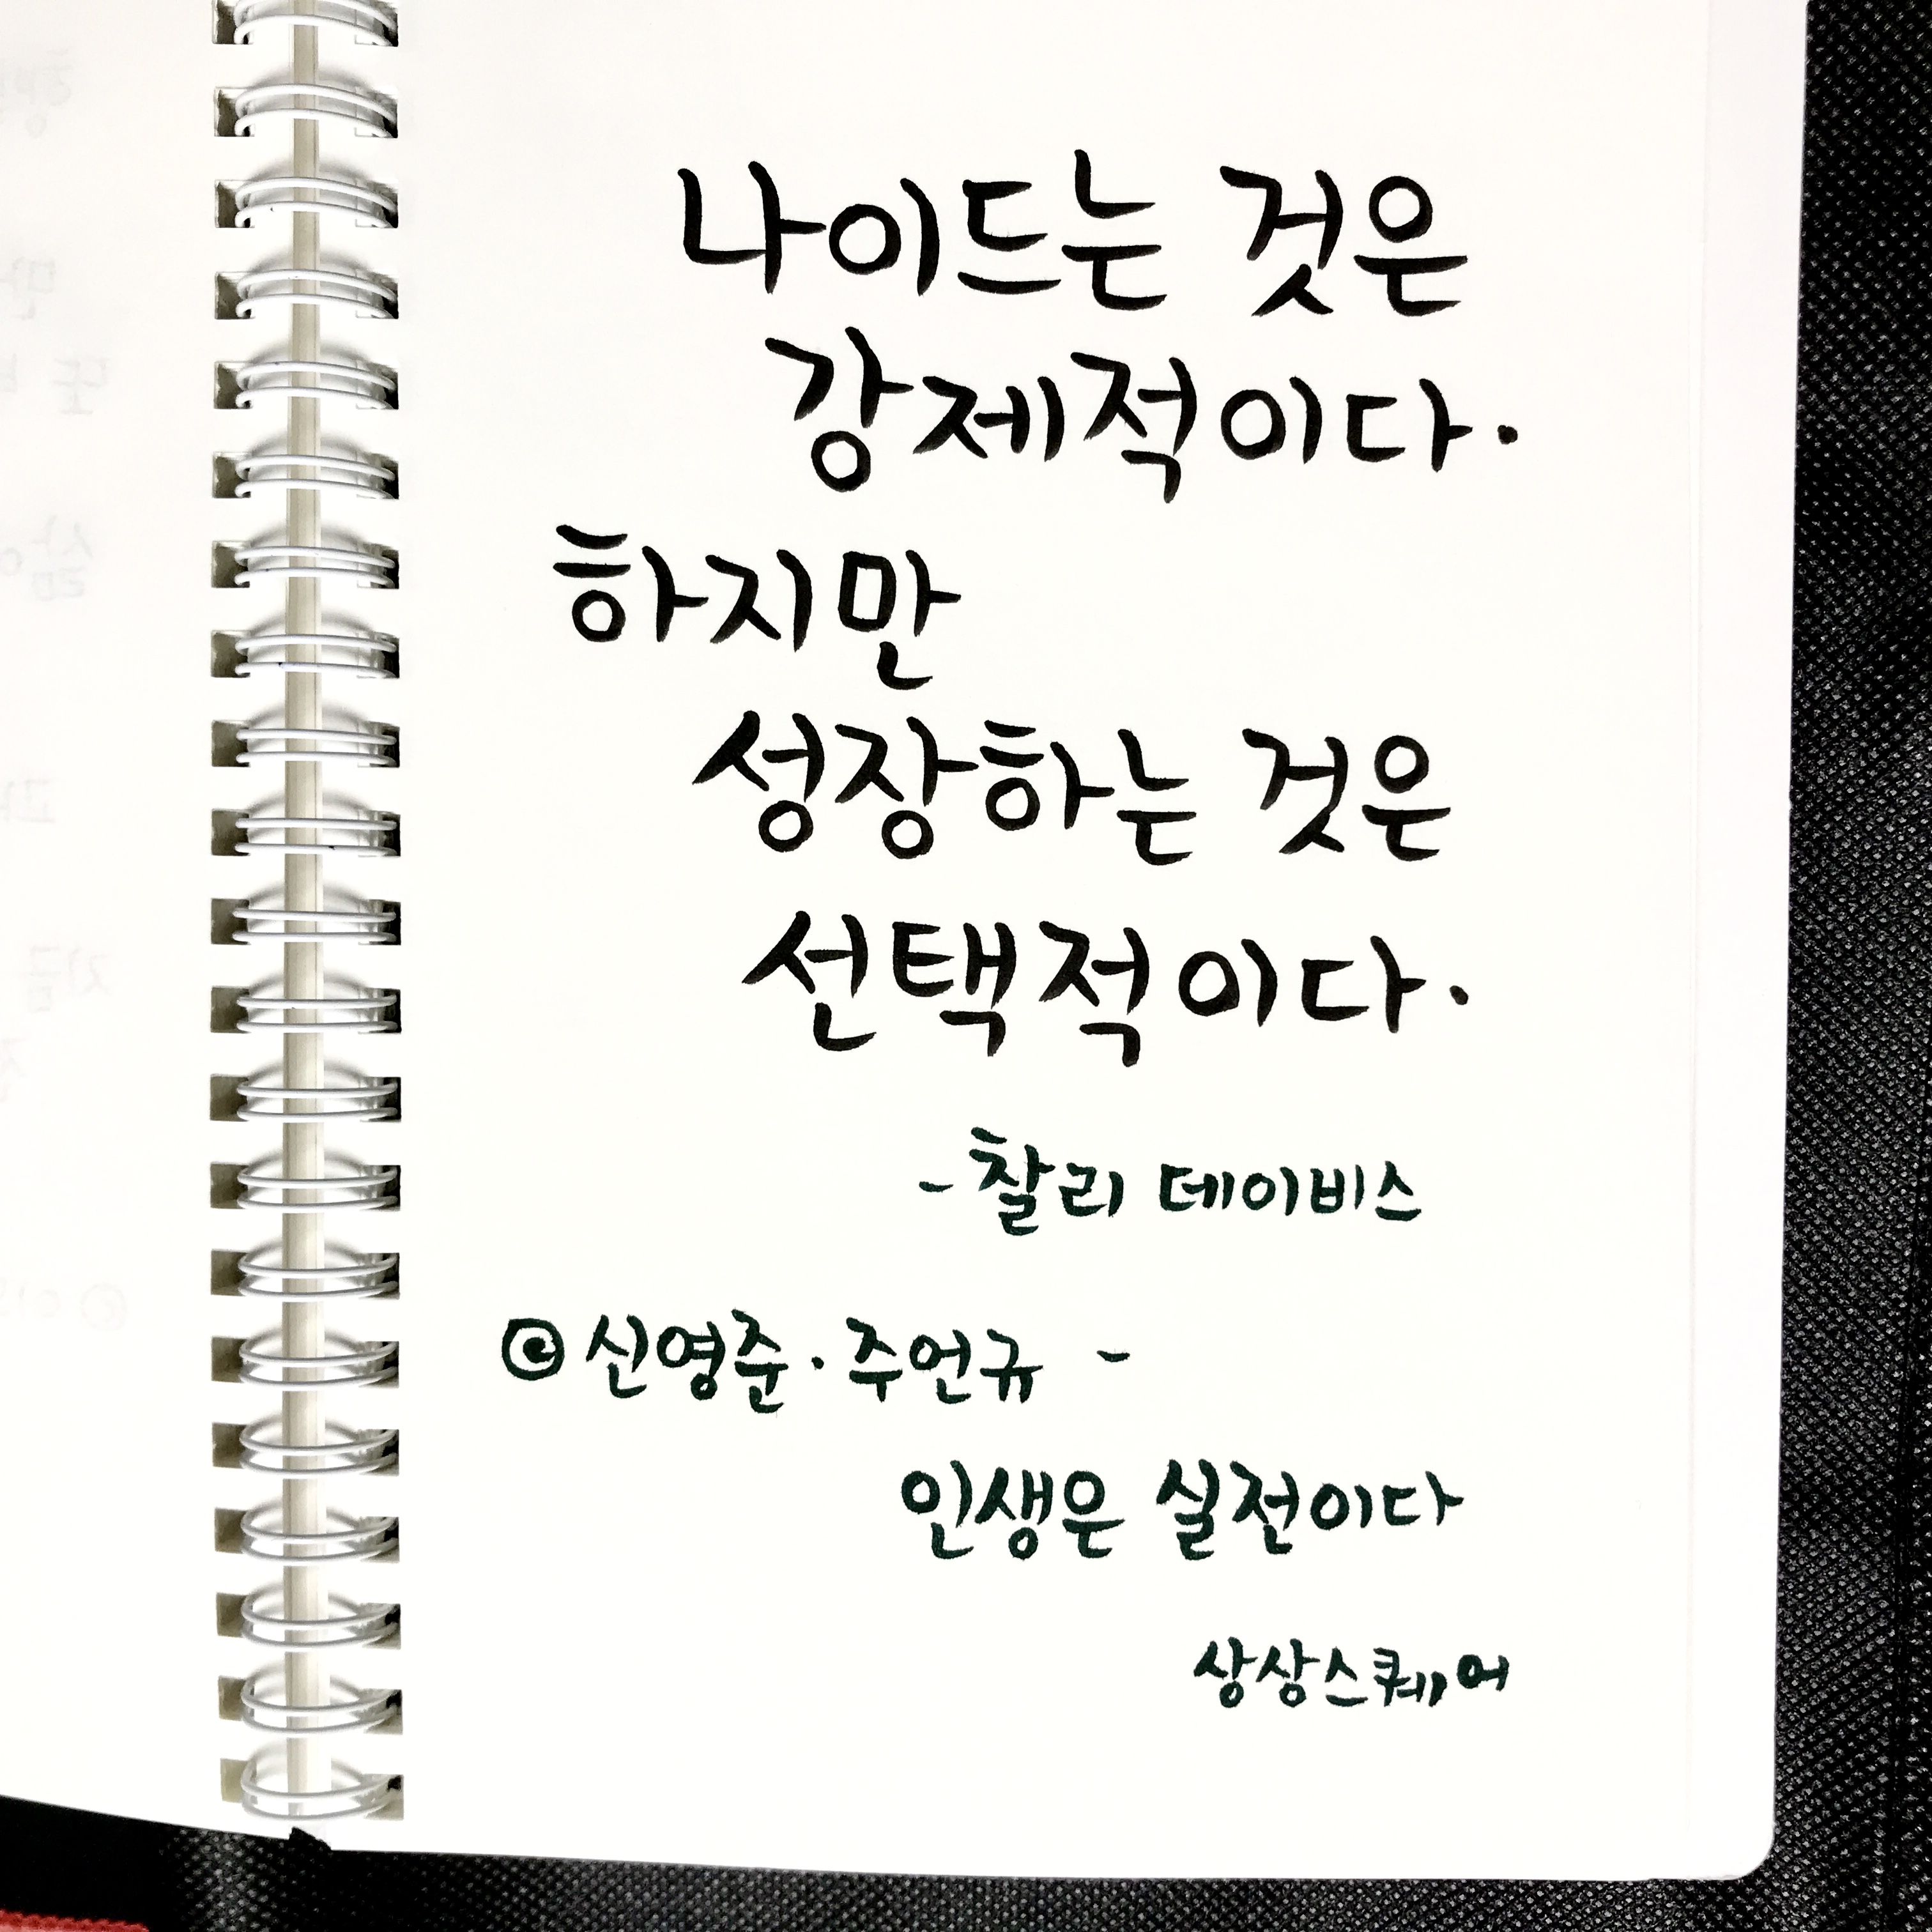 나이드는 것은
강제적이다.
하지만
성장하는 것은
선택적이다.
- 찰리 데이비스
ⓒ 신영준·주언규 -
인생은 실전이다
상상스퀘어